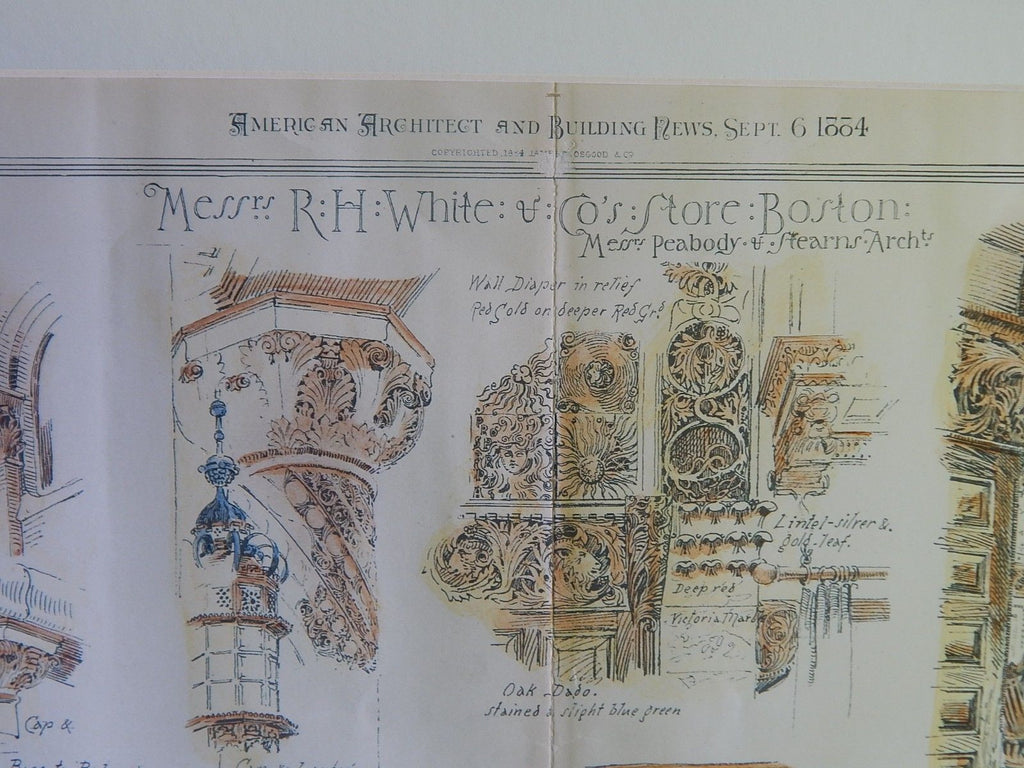 AMERICAN ARCHITECT AND BUILDING NEWS, SEPT. 6 1884
COPYRIGHTED, 1884 JAMES R. OSGOOD & CO
Messrs R:H:White:&:Co's:Store:Boston:
Messrs Peabody & Stearns Archts
Wall Diaper in relief
Red Gold on deeper Red Grd
Lintel-silver &
gold-leaf.
Deep red
Victoria Marble
Oak Dado.
stained a slight blue green
Cap &